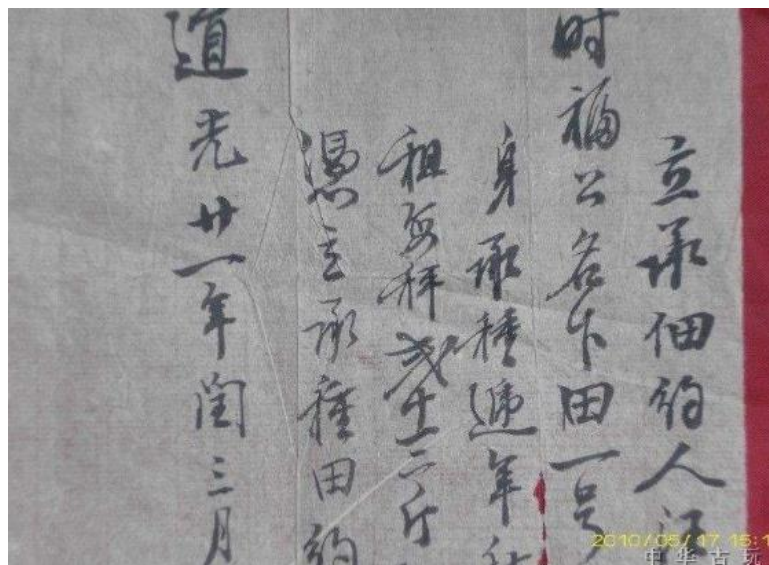 立承佃約人
时福公名下田一号
身承種遞年
租每秤弍十二斤
憑立承種田約
道光廿一年閏三月
2010/05/17 15:1
中华古玩